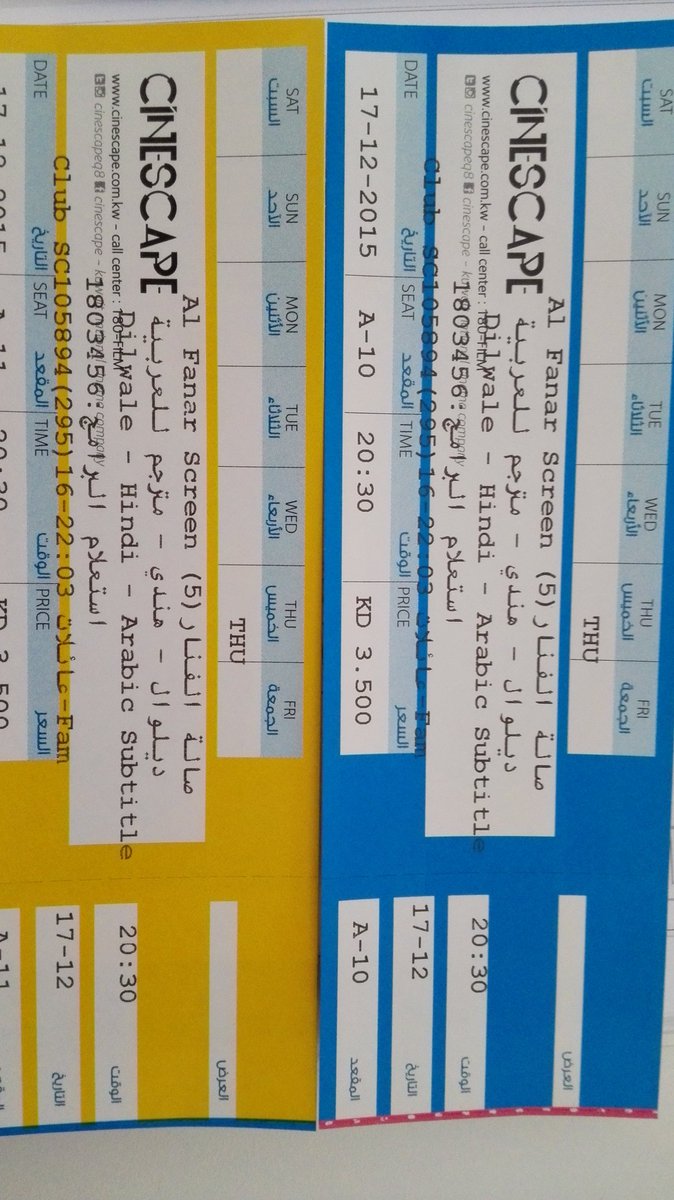 SAT SUN MON TUE WED THU FRI
السبت الأحد الاثنين الثلاثاء الأربعاء الخميس الجمعة
THU
CINESCAPE
Al Fanar Screen (5) صالة الفنار
ديلوال - هندي - مترجم للعربية
Dilwale - Hindi - Arabic Subtitle
www.cinescape.com.kw - call center : 180-FILM
استعلام البرامج: 1803456
cinescapeq8 cinescape - company
Club SC105894(295)16-22:03 عائلات-Fam
DATE التاريخ SEAT المقعد TIME الوقت PRICE السعر
17-12-2015 A-10 20:30 KD 3.500
العرض
20:30 الوقت
17-12 التاريخ
A-10 المقعد
SAT SUN MON TUE WED THU FRI
السبت الأحد الاثنين الثلاثاء الأربعاء الخميس الجمعة
THU
CINESCAPE
Al Fanar Screen (5) صالة الفنار
ديلوال - هندي - مترجم للعربية
Dilwale - Hindi - Arabic Subtitle
www.cinescape.com.kw - call center : 180-FILM
استعلام البرامج: 1803456
cinescapeq8 cinescape - company
Club SC105894(295)16-22:03 عائلات-Fam
DATE التاريخ SEAT المقعد TIME الوقت PRICE السعر
17-12-2015 A-11 20:30 KD 3.500
العرض
20:30 الوقت
17-12 التاريخ
A-11 المقعد